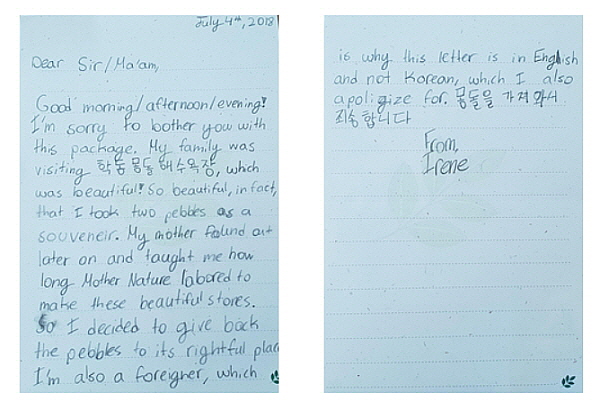 July 4th, 2018
Dear Sir/Ma'am,
Good morning/afternoon/evening!
I'm sorry to bother you with
this package. My family was
visiting 학동 몽돌 해수욕장, which
was beautiful! So beautiful, in fact,
that I took two pebbles as a
souveneir. My mother found out
later on and taught me how
long Mother Nature labored to
make these beautiful stones.
So I decided to give back
the pebbles to its rightful place
I'm also a foreigner, which
is why this letter is in English
and not Korean, which I also
apoligize for. 몽돌을 가져와서
죄송합니다
From,
Irene